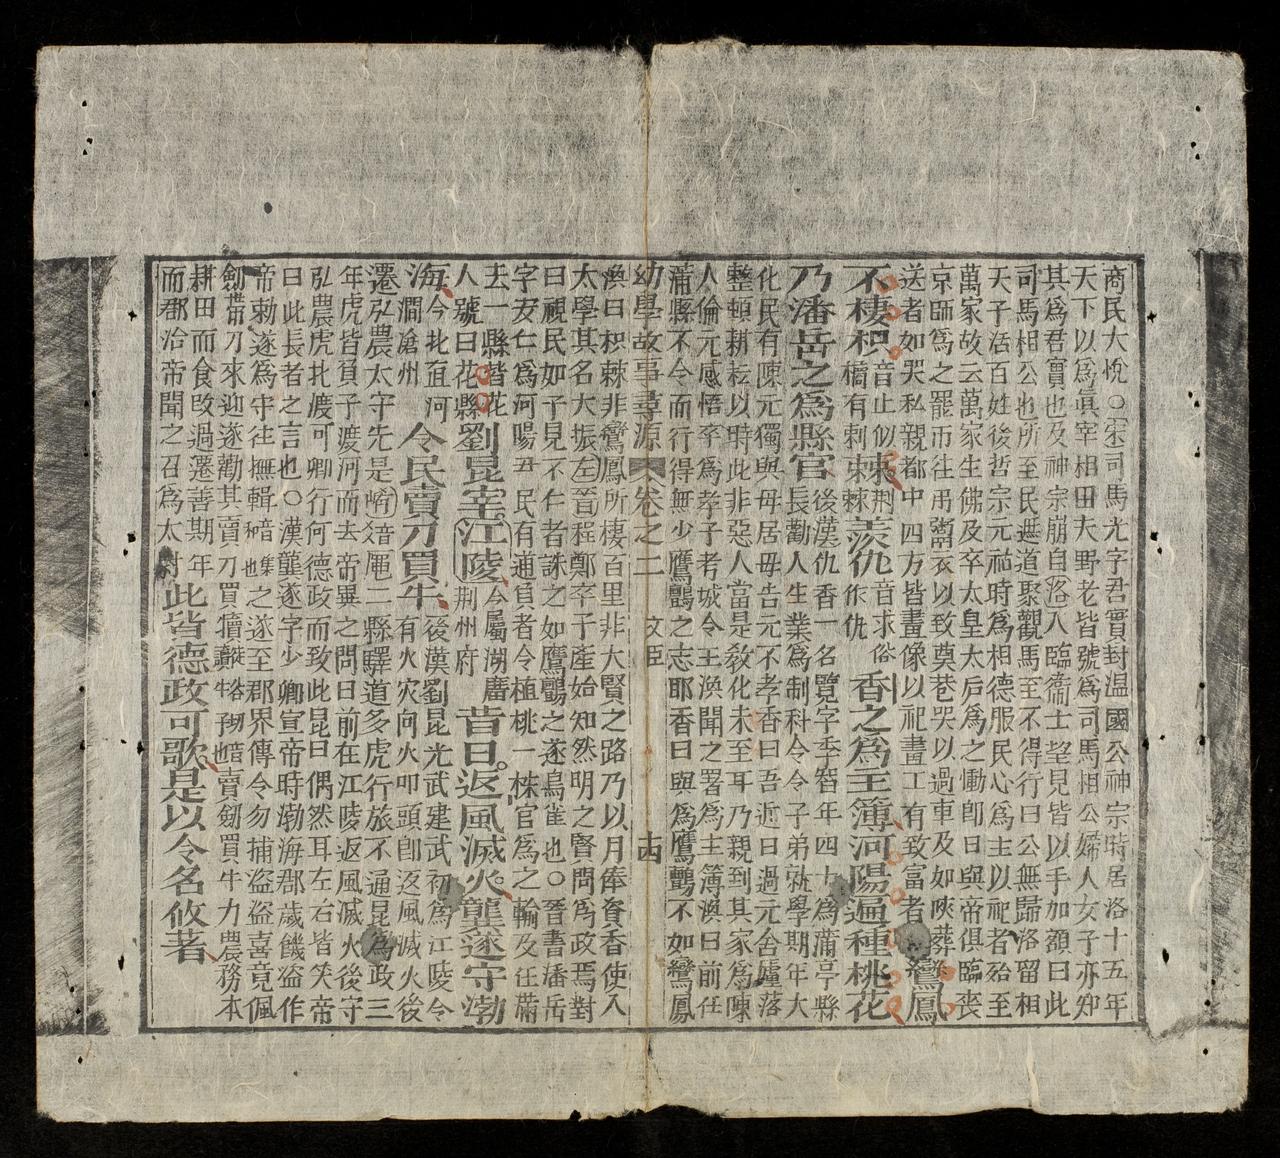 商民大悅○宋司馬光字君實封溫國公神宗時居洛十五年
天下以為眞宰相田夫野老皆號為司馬相公婦人女子亦知
其為君實也及神宗崩自洛入臨衞士望見皆以手加額曰此
司馬相公也所至民遮道聚觀馬至不得行曰公無歸洛留相
天子活百姓後哲宗元祐時為相德服民心為主以祀者殆至
萬家故云萬家生佛及卒太皇太后為之慟卽日與帝俱臨喪
京師為之罷市往弔鬻衣以致奠巷哭以過車及如陝葬
送者如哭私親都中四方皆畫像以祀畫工有致富者鸞鳳
不棲枳橘有刺音止似棘荆棘羨仇音求俗作仇香之為主簿河陽遍種桃花
乃潘岳之為縣官後漢仇香一名覽字季智年四十為蒲亭縣
長勸人生業為制科令令子弟就學期年大
化民有陳元獨與母居毋告元不孝香曰吾近日過元舍廬落
整頓耕耘以時此非惡人當是敎化未至耳乃親到其家為陳
人倫元感悟卒為孝子考城令王渙聞之署為主簿渙曰前任
蒲縣不令而行得無少鷹鸇之志耶香曰與為鷹鸇不如鸞鳳
幼學故事尋源 卷之二 文臣 十四
渙曰枳棘非鸞鳳所棲百里非大賢之路乃以月俸資香使入
太學其名大振左晉程鄭卒子產始知然明之賢問為政焉對
曰視民如子見不仁者誅之如鷹鸇之逐鳥雀也○晉書潘岳
字安仁為河陽尹民有逋負者令植桃一株官為之輸及任滿
去一縣皆花
人號曰花縣劉昆宰江陵今屬湖廣荆州府昔日返風滅火龔遂守渤
海今北直河澗滄州令民賣刀買牛後漢劉昆光武建武初為江陵令
有火灾向火叩頭卽返風滅火後
遷弘農太守先是崤音爻黽二縣驛道多虎行旅不通昆為政三
年虎皆負子渡河而去帝異之問曰前在江陵返風滅火後守
弘農虎北渡可卿行何德政而致此昆曰偶然耳左右皆笑帝
曰此長者之言也○漢龔遂字少卿宣帝時渤海郡歲饑盜作
帝勅遂為守往撫輯音集也之遂至郡界傳令勿捕盜盜喜竟佩
劒帶刀來迎遂勸其賣刀買犢賣劒買牛力農務本
耕田而食改過遷善期年
而郡治帝聞之召為太尉此皆德政可歌是以令名攸著